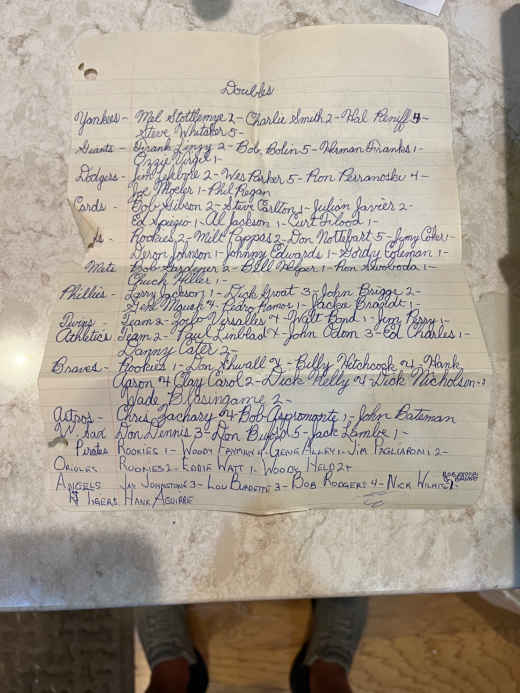 Doubles
Yankees - Mel Stottlemye 2 - Charlie Smith 2 - Hal Reniff 4 -
Steve Whitaker 5 -
Giants - Frank Linzy 2 - Bob Bolin 5 - Herman Franks 1 -
Ozzie Virgil 1 -
Dodgers - Jim Lefebvre 2 - Wes Parker 5 - Ron Perranoski 4 -
Joe Moeler 1 - Phil Regan
Cards - Bob Gibson 2 - Steve Carlton 1 - Julian Javier 2 -
Ed Spiezio 1 - Al Jackson 1 - Curt Flood 1 -
s - Rookies 2 - Milt Pappas 2 - Don Nottebart 5 - Jimy Coker 1 -
Deron Johnson 1 - Johnny Edwards 1 - Gordy Coleman 1 -
Mets Bob Hepler 1 - Ron Swoboda 1 -
Chuck Hiller 1 -
Phillies - Larry Jackson 1 - Dick Groat 3 - John Briggs 2 -
Pedro Ramos 1 - Jackie Brandt 1 -
Twins - Team 2 - Zoilo Versalles 4 - Walt Bond 1 - Jim Perry 1 -
Athletics Team 2 - Paul Linblad 4 - John Odom 3 - Ed Charles 1 -
Danny Cater 2 -
Braves - Rookies 1 - Don Shwall 4 - Billy Hitchcock 4 - Hank
Aaron 4 Clay Carol 2 - Dick Kelly 4 - Dick Nicholson -
Wade Blasingame 2 -
Astros - Chris Zachary 4 Bob Aspromonte 1 - John Bateman
W. Sox Don Dennis 3 - Don Buford 5 - Jack Lamabe 1 -
Pirates Rookies 1 - Woody Fryman 4 - Gene Alley 1 - Jim Pagliaroni 2 -
Orioles Rookies 2 - Eddie Watt 1. Woody Held 2 +
Angels Jay Johnstone 3 - Lou Burdette 3 - Bob Rodgers 4 - Nick Wilhite -
Tigers Hank Aguirre